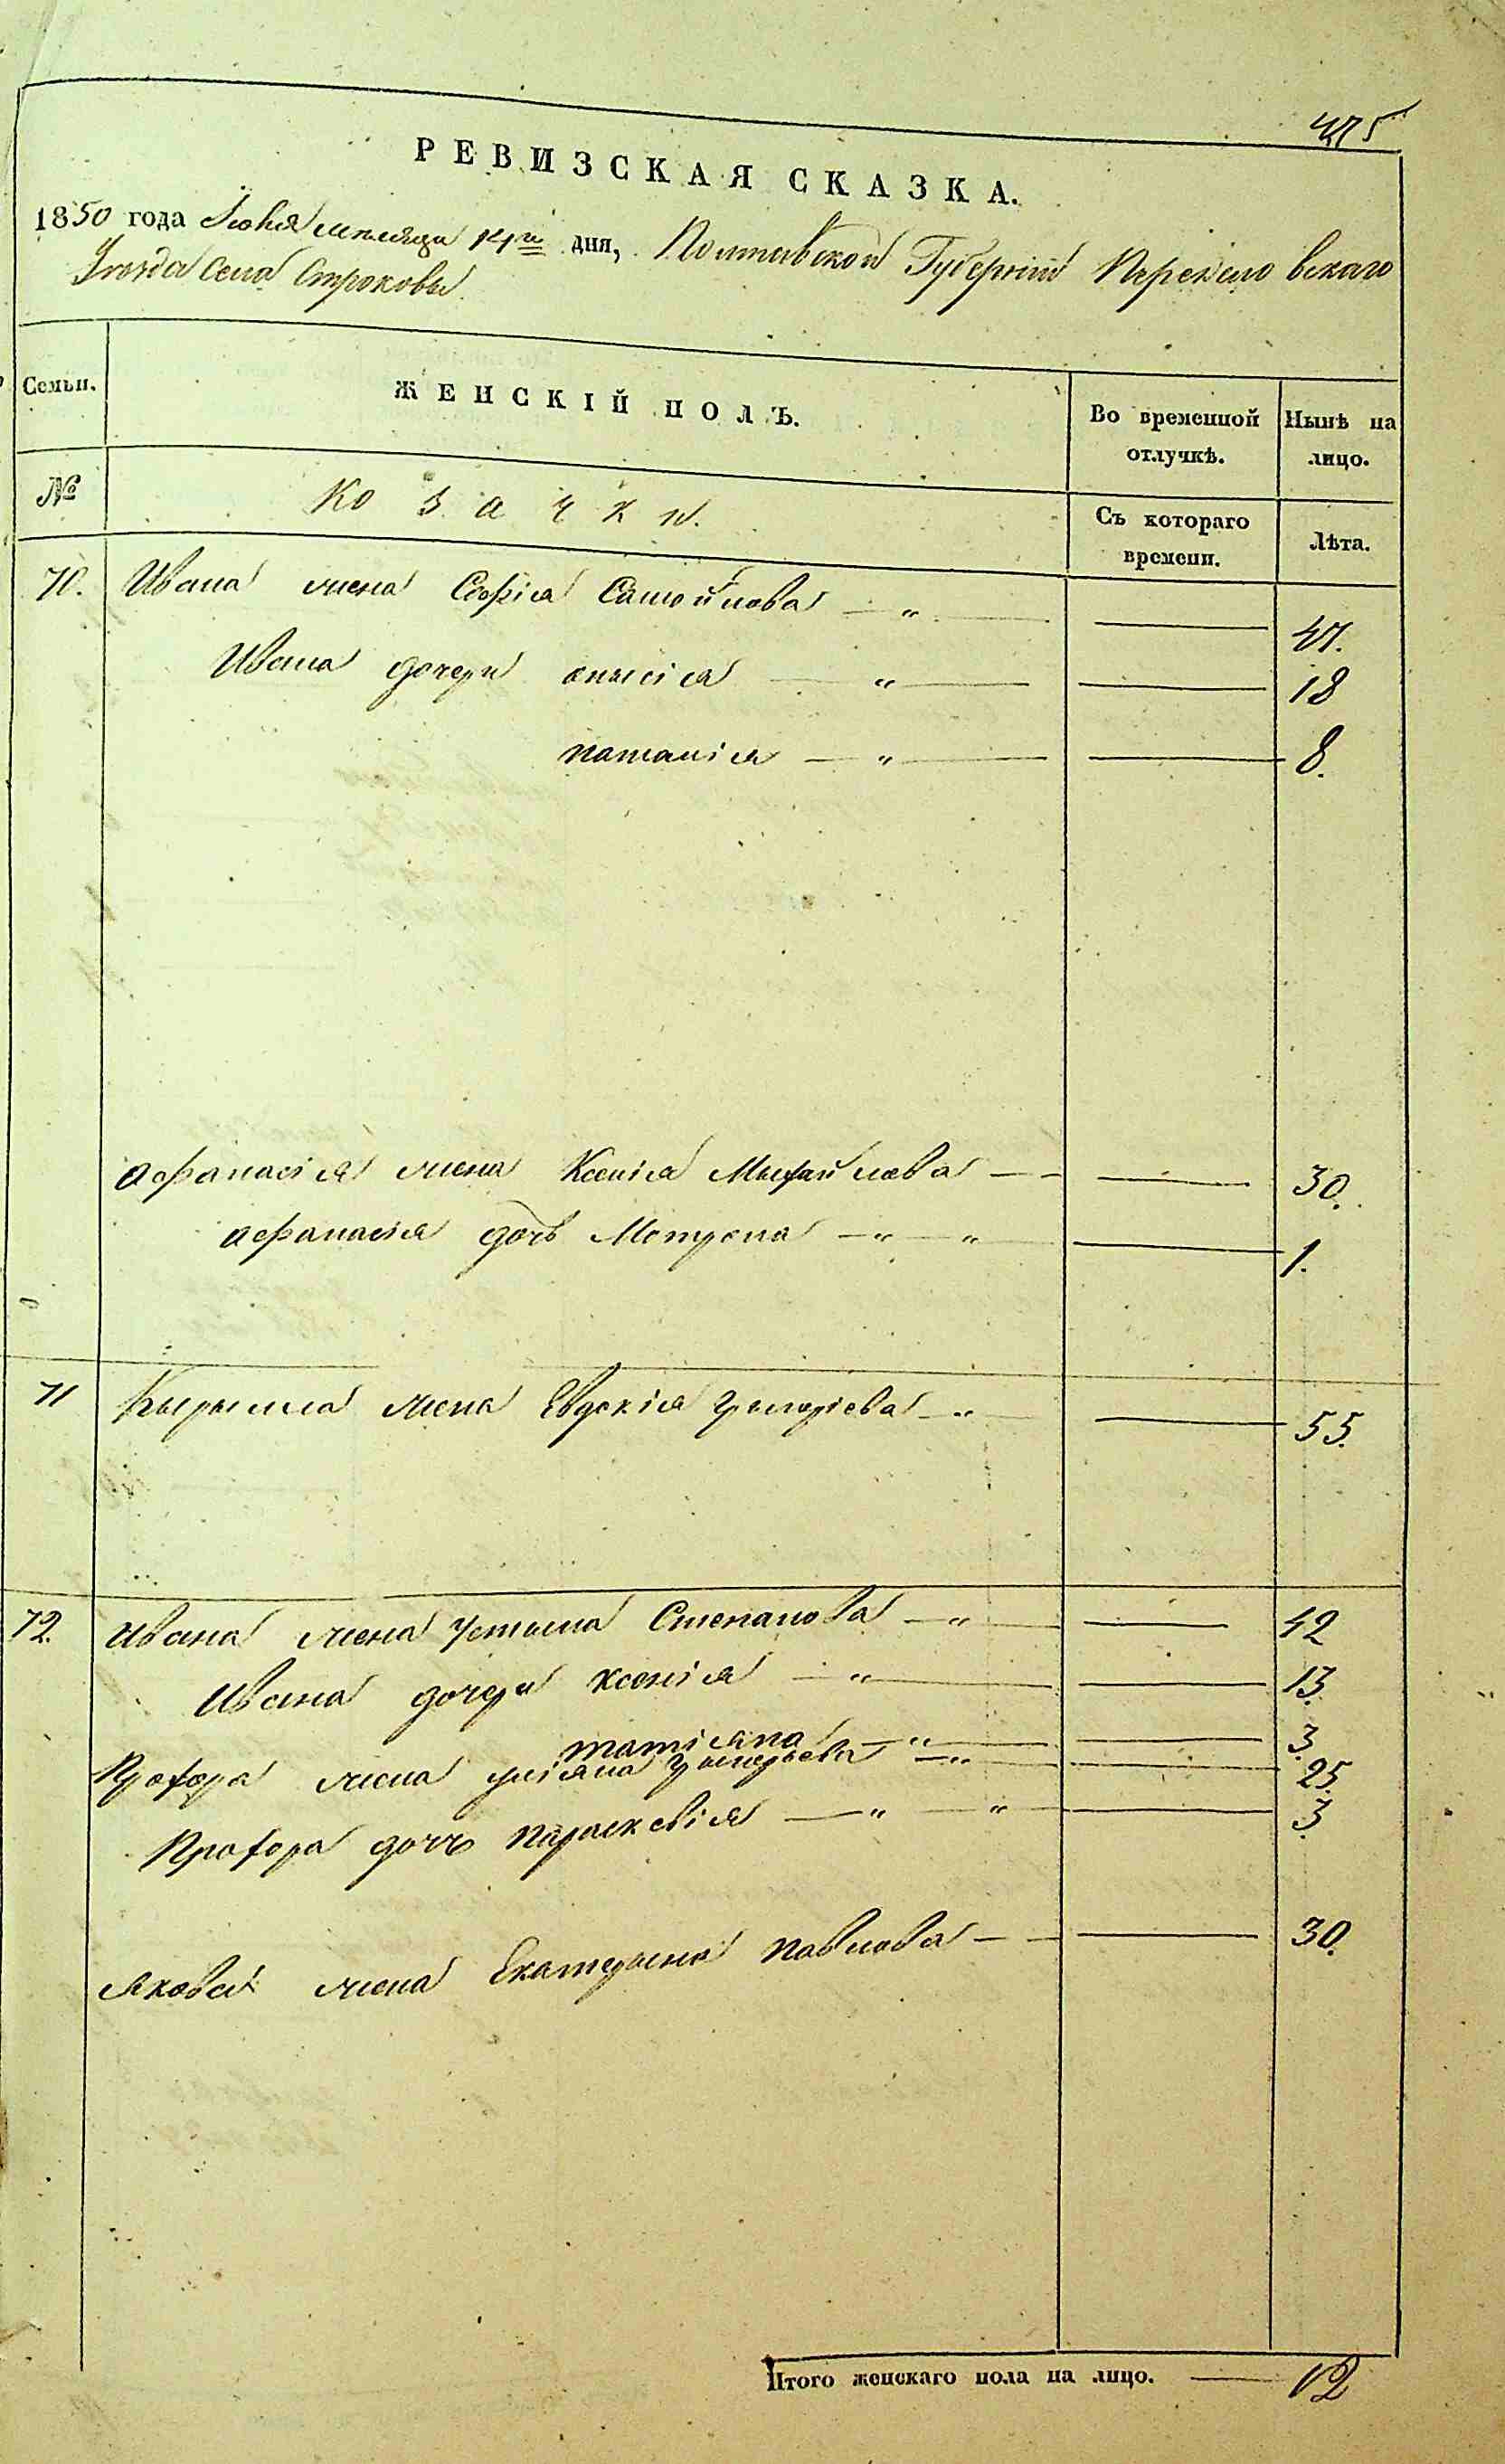 475
РЕВИЗСКАЯ СКАЗКА.
1850 года Июня месяца дня, Полтавской Губернии Переясловскаго
Уезда села Строковы
Семьи.
ЖЕНСКІЙ ПОЛЪ.
Во временной отлучкѣ.
Нынѣ на лицо.
№
Козачки.
Съ котораго времени.
Лѣта.
70. Ивана жена Софія Самойлова — " — 47.
Ивана дочери — " — 18
наталія — " — 8.
афанасія жена Ксенія Михайлова — 30.
афанасія дочь Мотрона — " — " — 1.
71 Кырыла жена Евдокія григоріева — " — 55.
72. Ивана жена Устина Степанова — " — 42
Ивана дочери ксенія — " — 13.
татіяна — " — 3.
Прохора жена уліяна григорьева — " — 25.
Прохора дочь параскевія — " — " — 3.
якова жена Екатерина павлова — 30.
Итого женскаго пола на лицо. — 12